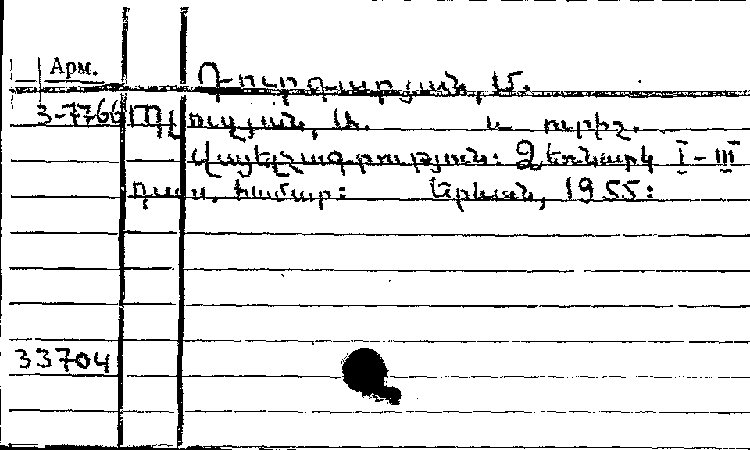 Арм.
3-7766
ուզյան, Ա. և ուրիշ.
Վայելչագրություն: Ձեռնարկ I - III
դաս. համար: Երևան, 1955:
33704